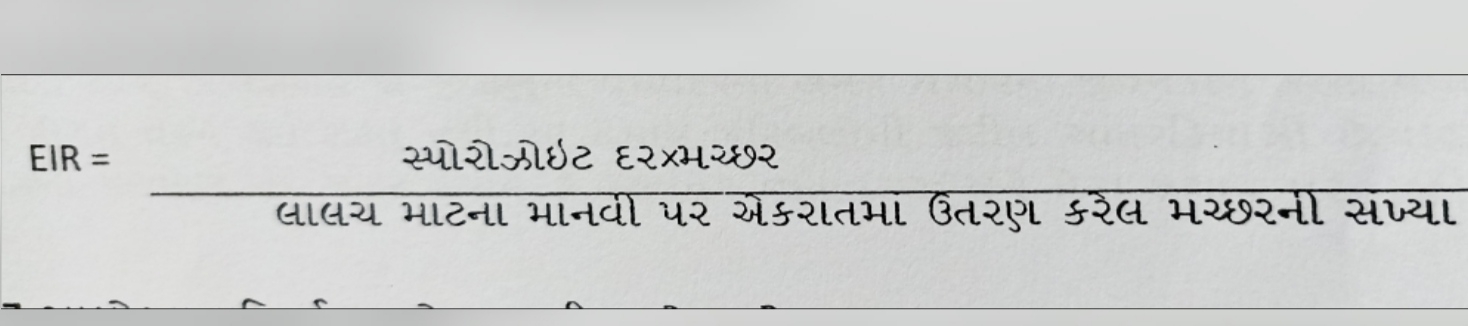 EIR = સ્પોરોઝોઇટ દર×મચ્છર
લાલચ માટના માનવી પર એકરાતમાં ઉતરણ કરેલ મચ્છરની સંખ્યા